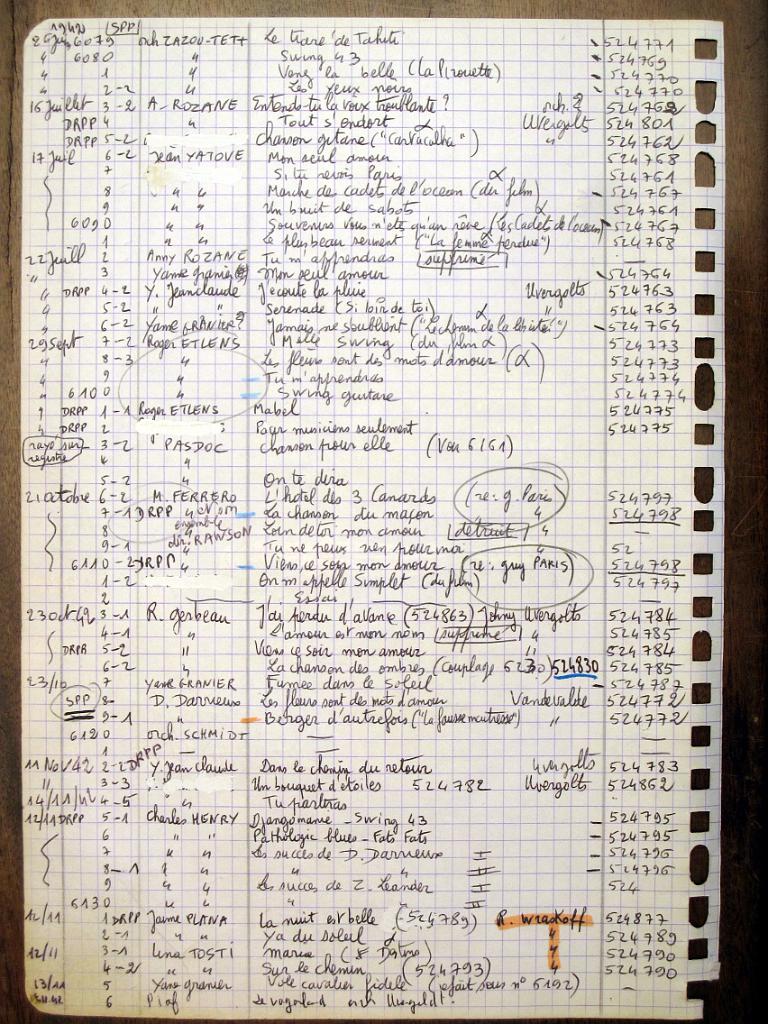 1942 SPP
6079 orch ZAZOU-TETT Le tiare de Tahiti 524771
" 6080 " Swing 43 524769
" 1 " la belle (La Pirouette) 524770
" 2-2 " Les yeux noirs 524770
16 juillet 3-2 A. ROZANE Entends-tu la voix troublante? orch.? 524762
DRPP 4 " Tout s'endort Uvergolts 524801
DRPP 5-2 Chanson gitane ("Cartacalha") " 524762
17 Juil 6-2 Jean YATOVE Mon seul amour 524768
7 Si tu revois Paris 524761
8 " " Marche de cadets de l'ocean (du film) 524767
9 " " Un bruit de sabots 524761
6090 Souvenirs vous n'etes qu'un rêve (les Cadets de l'ocean) 524767
1 " " Le plus beau serment ("La femme perdue") 524768
22 Juill 2 Anny ROZANE Tu m'apprendras supprimé —
" 3 Yane granier Mon seul amour 524764
" DRPP 4-2 Y. Jeanclaude J'ecoute la pluie Uvergolts 524763
" 5-2 " " Serenade (Si loin de toi) 524763
" 6-2 Yane GRANIER? Jamais ne s'oublient ("Le chemin de la liberté") 524764
29 Sept 7-2 Roger ETLENS Melle Swing (du film) 524773
" 8-3 " Les fleurs sont des mots d'amour (α) 524773
" 9 " Tu m'apprendras 524774
" 6100 " Swing guitare 524774
" DRPP 1-1 Roger ETLENS Mabel 524775
" DRPP 2 Pour musiciens seulement 524775
rayé sur registre 3-2 PASDOC Chanson pour elle (Voir 6161)
4 "
5-2 " On te dira
21 octobre 6-2 M. FERRERO L'hotel des 3 Canards (re: g. Paris) 524797
7-1 DRPP et son ensemble La chanson du maçon " 524798
8 dir. RAWSON Loin de toi mon amour détruit " —
9-1 Tu ne peux rien pour moi " 52
6110-2 DRPP " Viens ce soir mon amour (re: guy PARIS) 524798
1-2 On m'appelle Simplet (du film) 524797
2 Essai —
23 oct 42 3-1 R. gerbeau J'ai perdu d'avance (524863) Johny Uvergolts 524784
4-1 " L'amour est mon nom supprimé " 524785
DRPP 5-2 " Viens ce soir mon amour " 524784
6-2 " La chanson des ombres (Couplage 6230) 524830 524785
23/10 7 Yane GRANIER Fumée dans le Soleil 524787
SPP 8- D. Darrieux Les fleurs sont des mots d'amour Vandevalde 524772
9-1 " Berger d'autrefois ("la fausse maitresse") " 524772
6120 orch. SCHMIDT — —
1 — —
11 Nov 42 2-2 DRPP Y. Jean Claude Dans le chemin du retour Uvergolts 524783
" 3-3 Un bouquet d'etoiles 524782 Uvergolts 524862
14/11/42 4-5 " Tu partiras
12/11 DRPP 5-1 Charles HENRY Djangomanie - Swing 43 524795
6 " " Pathologic blues - Fats Fats 524795
7 " " Les succes de D. Darrieux I 524796
8-1 " " " II 524796
9 " " Les succes de Z. Leander I 524
6130 " " II
12/11 1 DRPP Jaime PLANA La nuit est belle (-524789) R. Wraskoff 524877
2-1 " " Ya du soleil " 524789
12/11 3-1 Lina TOSTI Maria " 524790
4-2 " " Sur le chemin (524793) " 524790
13/11 5 Yane granier Vole cavalier fidele (refait sous n° 6192)
6 Piaf Le vagabond